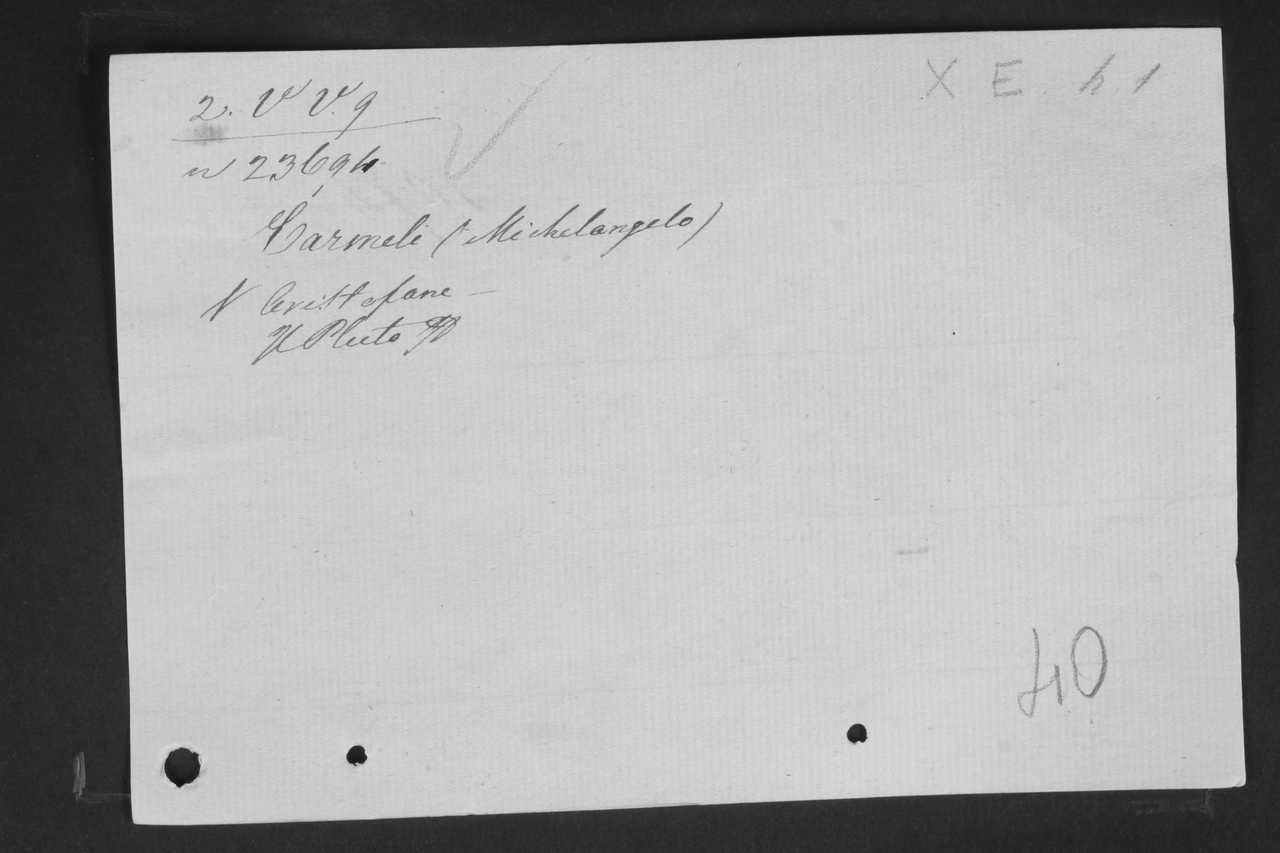 2. V V. 9
X E h 1
n 23694
Carmeli (Michelangelo)
V Aristofane —
Il Pluto
40